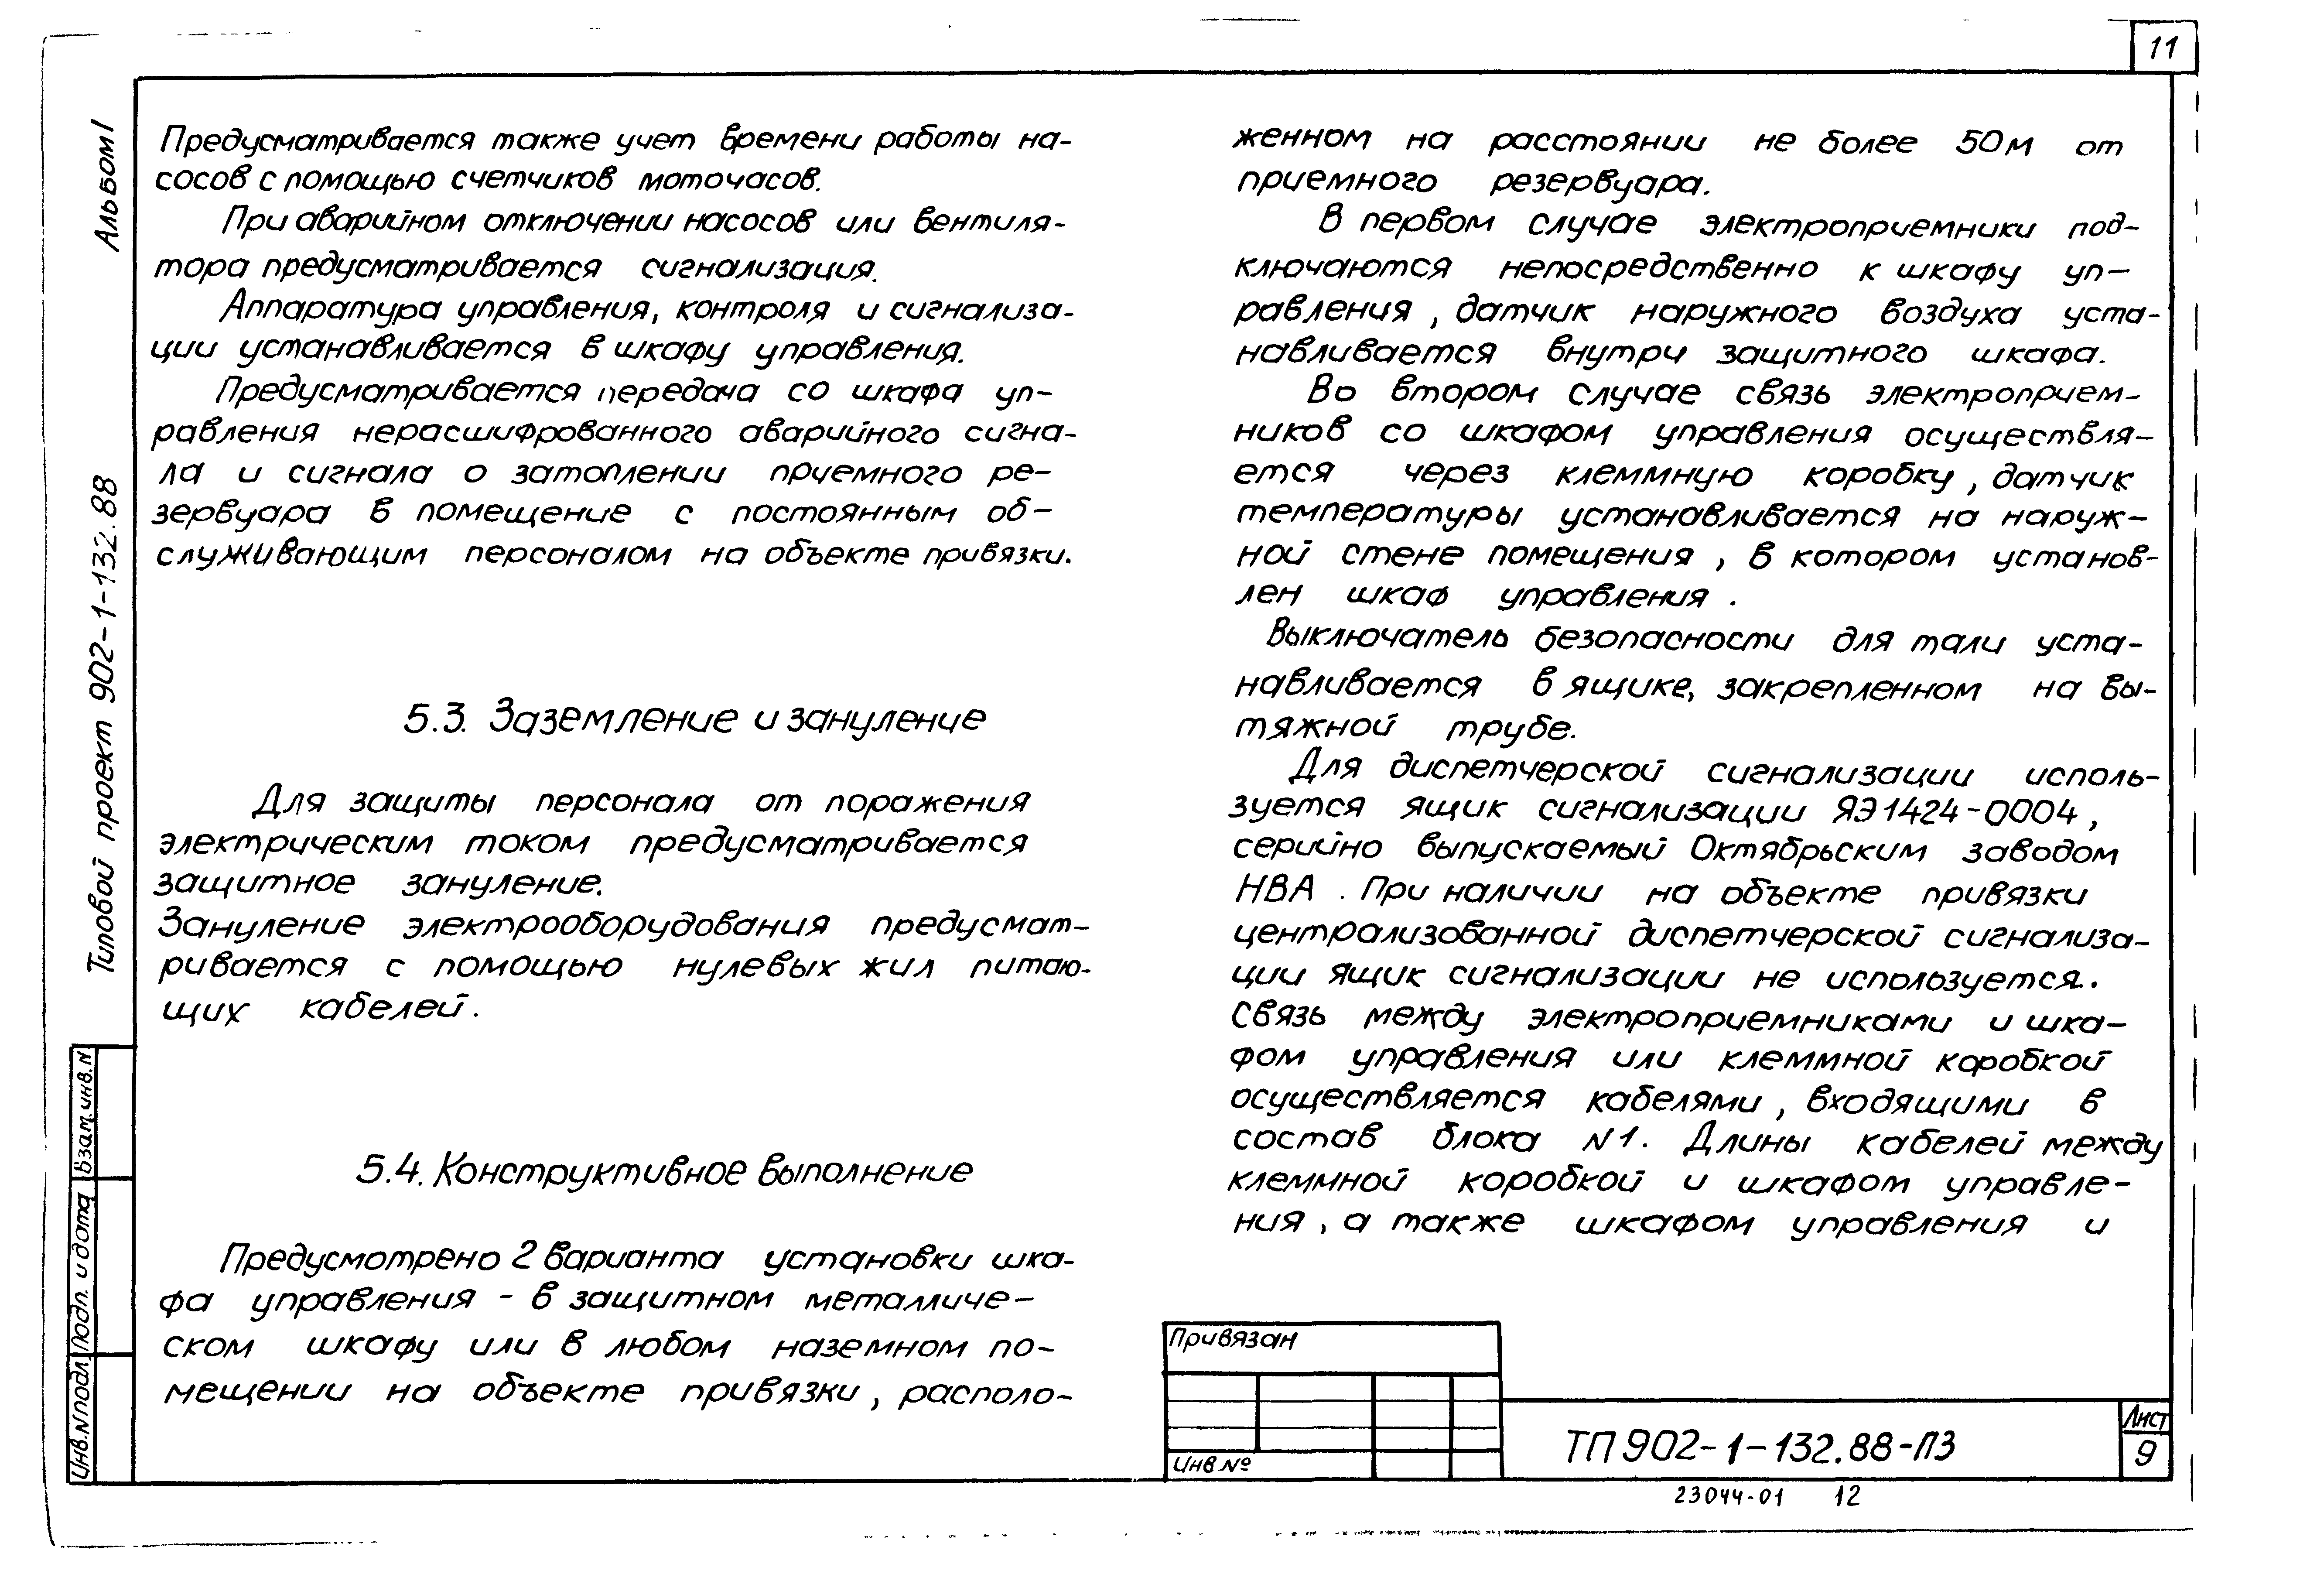 11
Альбом I
Типовой проект 902-1-132.88
Предусматривается также учет времени работы на-
сосов с помощью счетчиков моточасов.
При аварийном отключении насосов или вентиля-
тора предусматривается сигнализация.
Аппаратура управления, контроля и сигнализа-
ции устанавливается в шкафу управления.
Предусматривается передача со шкафа уп-
равления нерасшифрованного аварийного сигна-
ла и сигнала о затоплении приемного ре-
зервуара в помещение с постоянным об-
служивающим персоналом на объекте привязки.
5.3. Заземление и зануление
Для защиты персонала от поражения
электрическим током предусматривается
защитное зануление.
Зануление электрооборудования предусмат-
ривается с помощью нулевых жил питаю-
щих кабелей.
5.4. Конструктивное выполнение
Предусмотрено 2 варианта установки шка-
фа управления - в защитном металличе-
ском шкафу или в любом наземном по-
мещении на объекте привязки, располо-
женном на расстоянии не более 50м от
приемного резервуара.
В первом случае электроприемники под-
ключаются непосредственно к шкафу уп-
равления, датчик наружного воздуха уста-
навливается внутри защитного шкафа.
Во втором случае связь электроприем-
ников со шкафом управления осуществля-
ется через клеммную коробку, датчик
температуры устанавливается на наруж-
ной стене помещения, в котором установ-
лен шкаф управления.
Выключатель безопасности для тали уста-
навливается в ящике, закрепленном на вы-
тяжной трубе.
Для диспетчерской сигнализации исполь-
зуется ящик сигнализации ЯЭ1424-0004,
серийно выпускаемый Октябрьским заводом
НВА. При наличии на объекте привязки
централизованной диспетчерской сигнализа-
ции ящик сигнализации не используется.
Связь между электроприемниками и шка-
фом управления или клеммной коробкой
осуществляется кабелями, входящими в
состав блока N1. Длины кабелей между
клеммной коробкой и шкафом управле-
ния, а также шкафом управления и
Взам.инв.N
Подп. и дата
Инв.N подл.
Привязан
Инв.№
ТП 902-1-132.88-ПЗ
Лист
9
23044-01 12